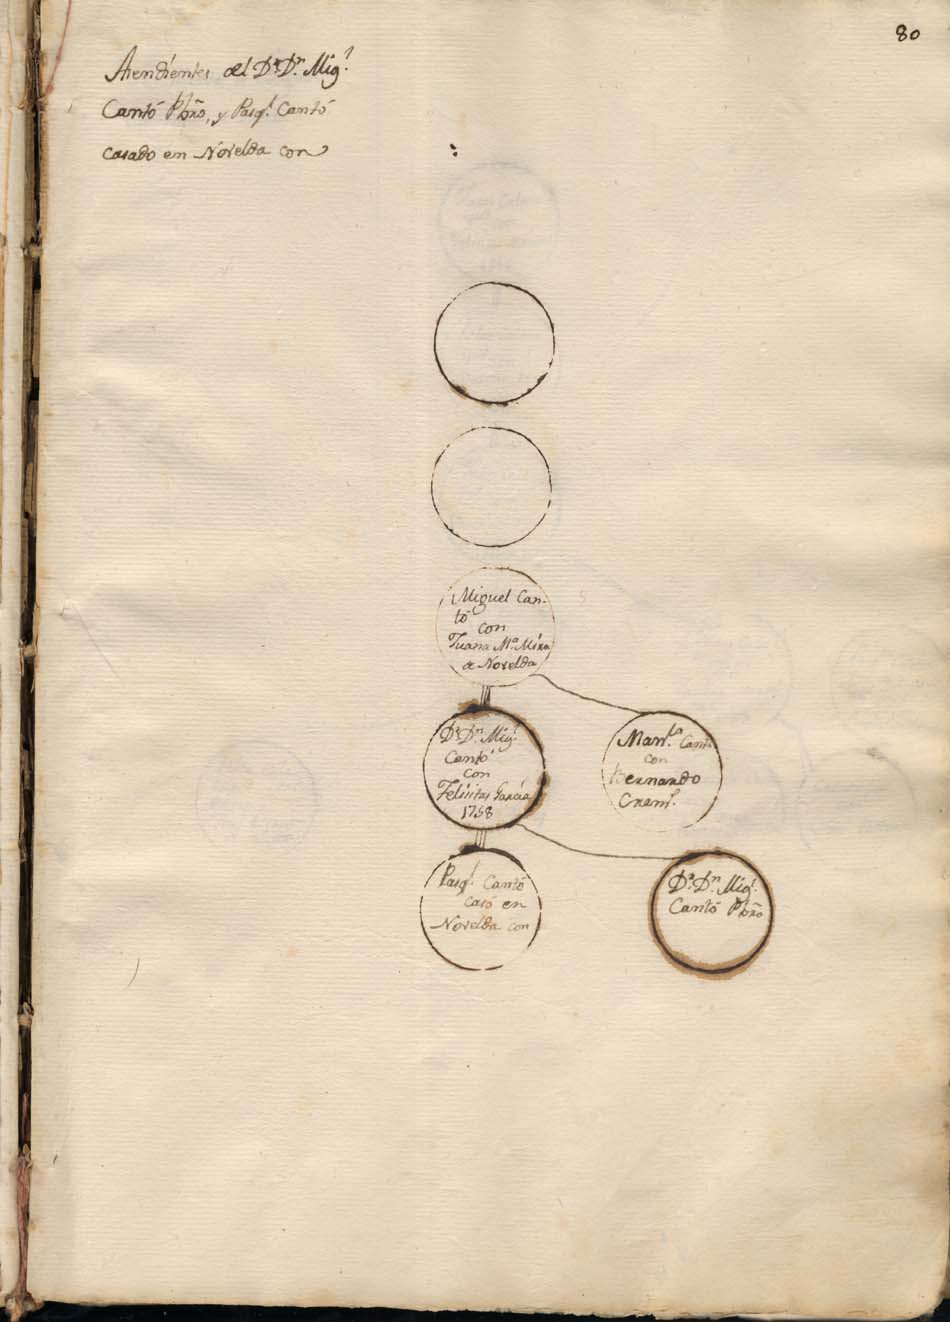 80
Asendientes del D.r D.n Mig.l
Cantó Pbro, y Pasq.l Cantó
casado en Novelda con
Miguel Can-
tó
con
Juana M.a Mira
de Novelda
D.r D.n Mig.l
Cantó
con
Felicitas García
1758
Man.la Cantó
con
Bernardo
Crem.s
Pasq.l Cantó
casó en
Novelda con
D.r D.n Mig.l
Cantó Pbro